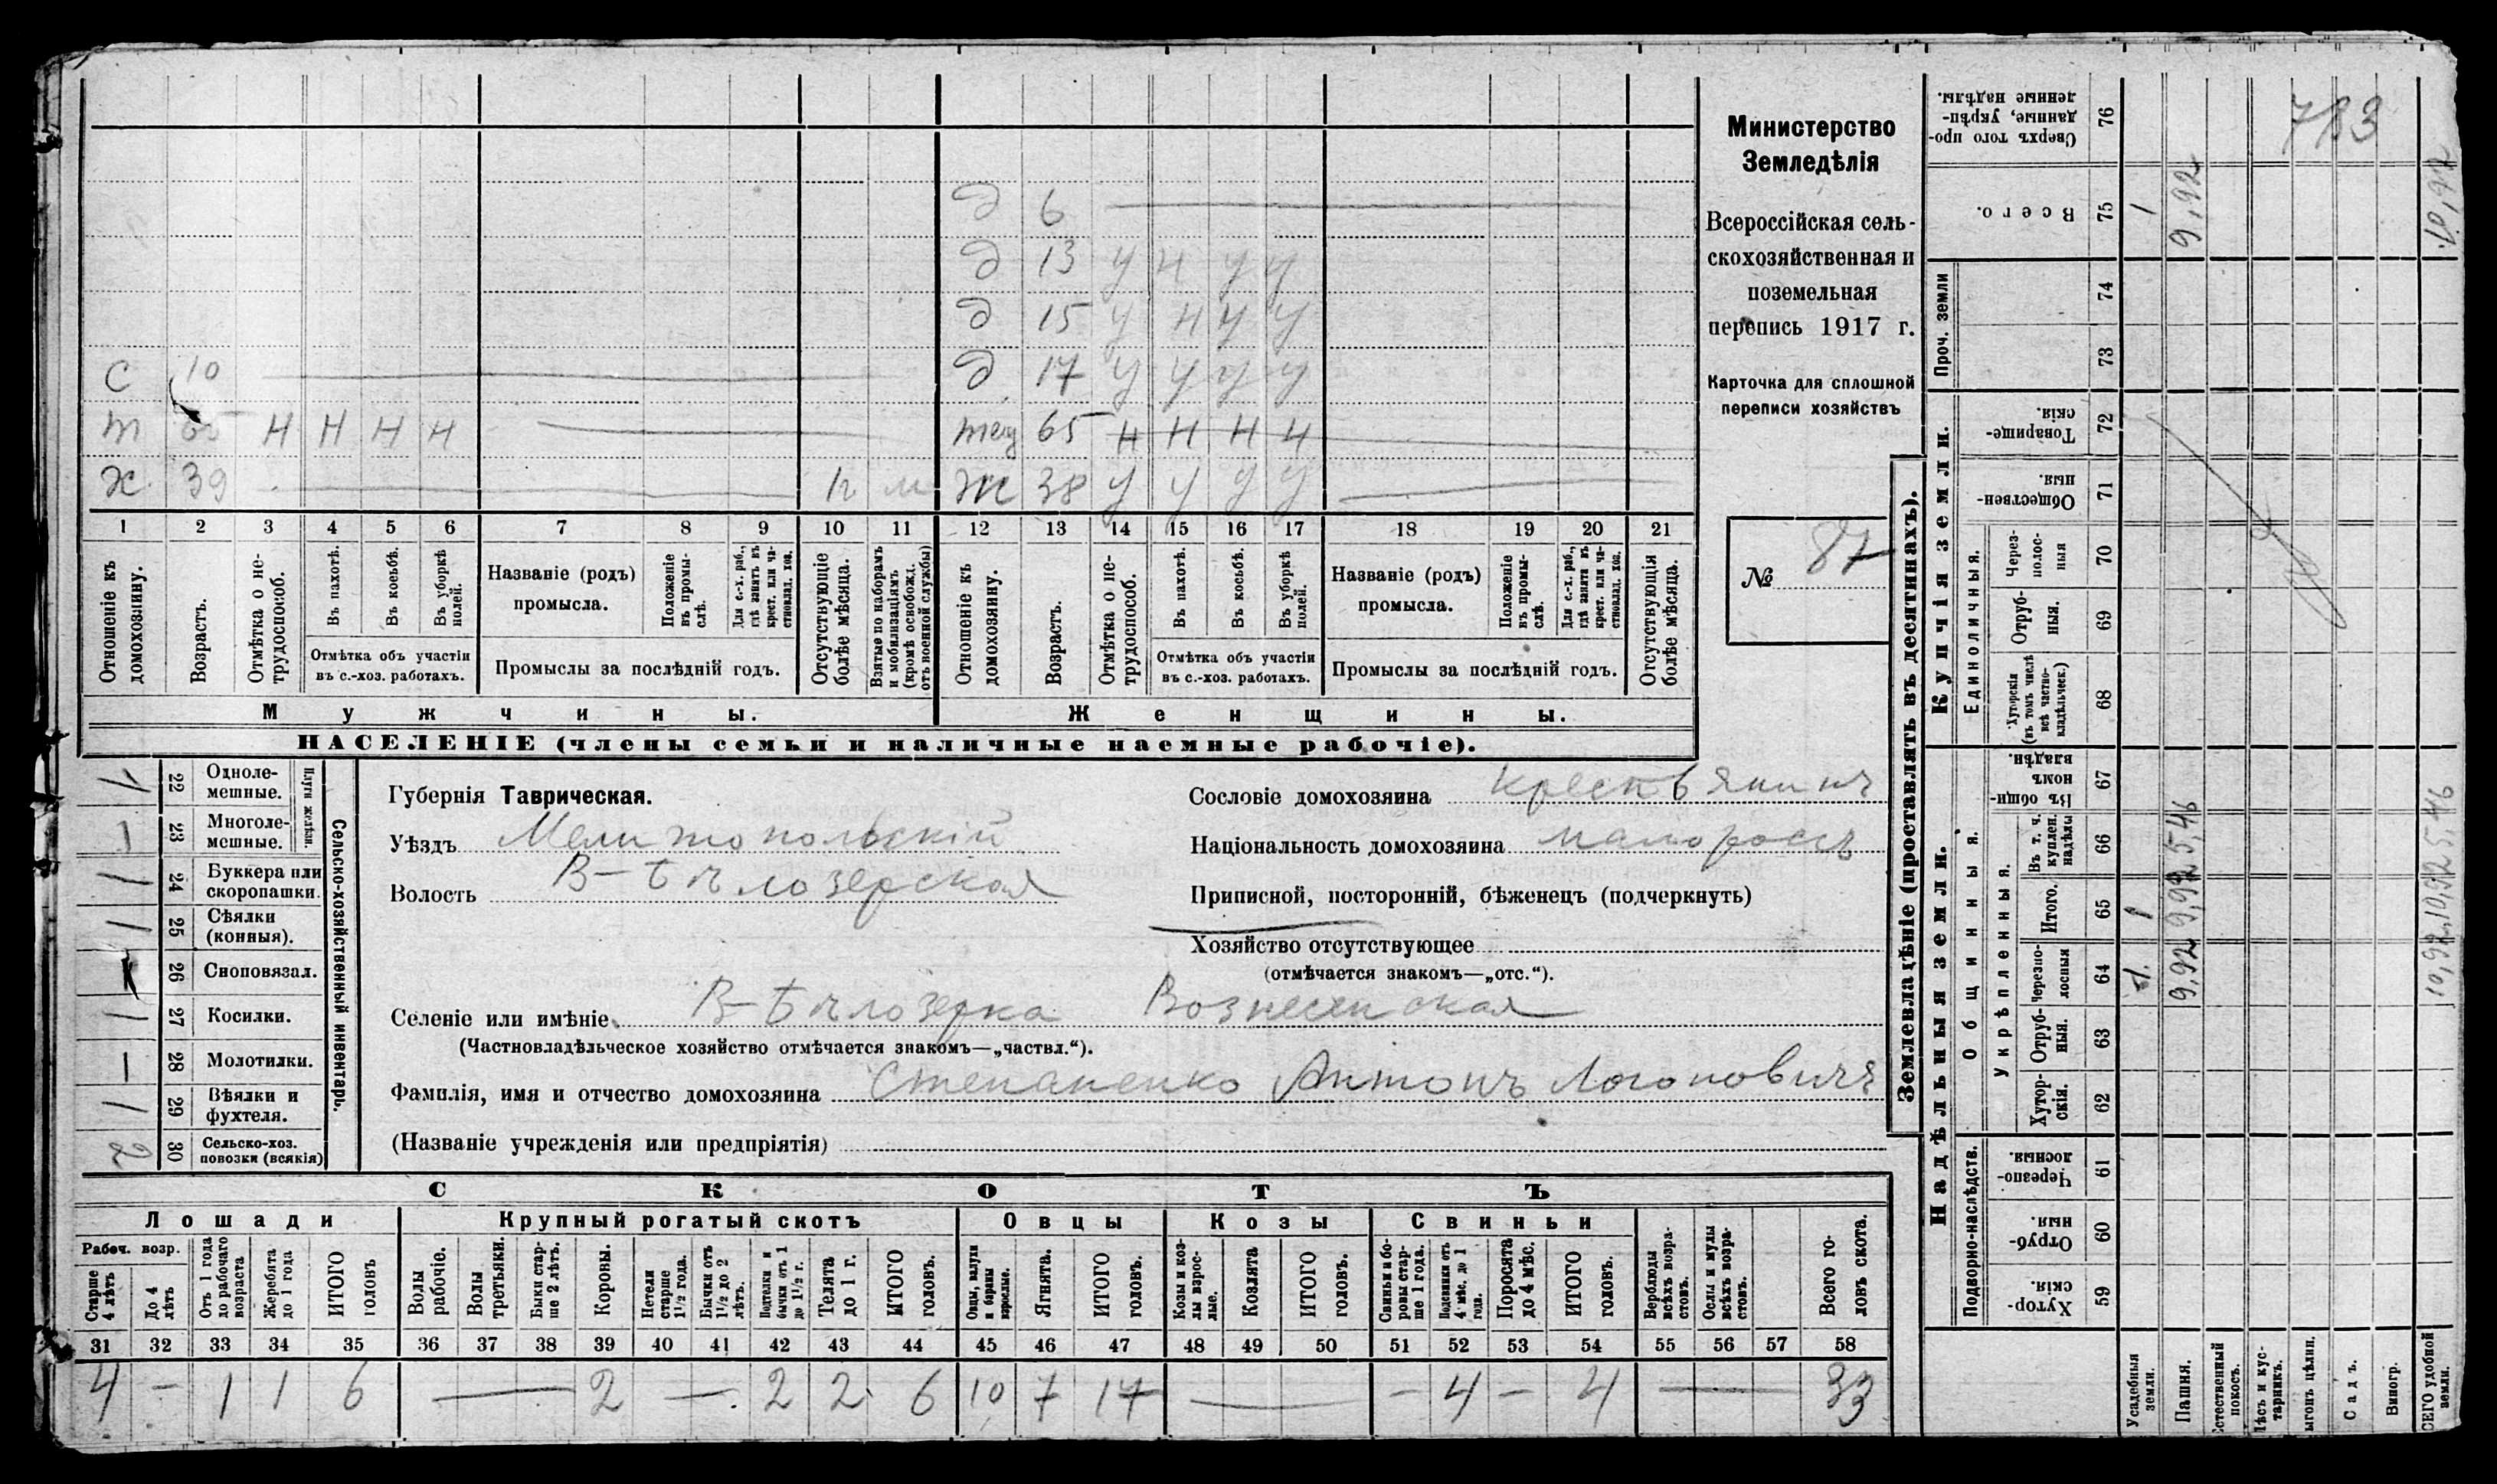 Министерство
Земледѣлія
Всероссійская сель-
скохозяйственная и
поземельная
перепись 1917 г.
Карточка для сплошной
переписи хозяйствъ
№ 87
783
д 6
д 13 у н у у
д 15 у н у у
с 10 д 17 у у у у
т 65 Н Н Н Н тещ 65 Н Н Н Н
х 39 м ж 38 у у у у
1 2 3 4 5 6 7 8 9 10 11 12 13 14 15 16 17 18 19 20 21
Отношеніе къ домохозяину.
Возрастъ.
Отмѣтка о не-трудоспособ.
Въ пахотѣ.
Въ косьбѣ.
Въ уборкѣ полей.
Отмѣтка объ участіи
въ с.-хоз. работахъ.
Названіе (родъ)
промысла.
Положеніе въ промы-слѣ.
Для с.-х. раб., гдѣ занятъ въ крест. или ча-стновлад. хоз.
Промыслы за послѣдній годъ.
Отсутствующіе болѣе мѣсяца.
Взятые по наборамъ и мобилизаціямъ (кромѣ освобожд. отъ военной службы)
Отношеніе къ домохозяину.
Возрастъ.
Отмѣтка о не-трудоспособ.
Въ пахотѣ.
Въ косьбѣ.
Въ уборкѣ полей.
Отмѣтка объ участіи
въ с.-хоз. работахъ.
Названіе (родъ)
промысла.
Положеніе въ промы-слѣ.
Для с.-х. раб., гдѣ занята въ крест. или ча-стновлад. хоз.
Промыслы за послѣдній годъ.
Отсутствующія болѣе мѣсяца.
Мужчины. Женщины.
НАСЕЛЕНІЕ (члены семьи и наличные наемные рабочіе).
Сельско-хозяйственный инвентарь.
Плуги желѣзн.
1 22 Одноле-мешные.
1 23 Многоле-мешные.
1 24 Буккера или скоропашки.
1 25 Сѣялки (конныя).
26 Сноповязал.
1 27 Косилки.
— 28 Молотилки.
1 29 Вѣялки и фухтеля.
2 30 Сельско-хоз. повозки (всякія)
Губернія Таврическая.
Уѣздъ Мелитопольскій
Волость В-Бѣлозерская
Сословіе домохозяина крестьянинъ
Національность домохозяина малороссъ
Приписной, посторонній, бѣженецъ (подчеркнуть)
Хозяйство отсутствующее
(отмѣчается знакомъ—„отс.“).
Селеніе или имѣніе В-Бѣлозерка Вознесенская
(Частновладѣльческое хозяйство отмѣчается знакомъ—„частвл.“).
Фамилія, имя и отчество домохозяина Степаненко Антонъ Логоновичъ
(Названіе учрежденія или предпріятія)
СКОТЪ
Лошади Крупный рогатый скотъ Овцы Козы Свиньи
Рабоч. возр.
Старше 4 лѣтъ
До 4 лѣтъ
Отъ 1 года до рабочаго возраста
Жеребята до 1 года
ИТОГО головъ
Волы рабочіе.
Волы третьяки.
Быки стар-ше 2 лѣтъ.
Коровы.
Нетели старше 1½ года.
Бычки отъ 1½ до 2 лѣтъ.
Подтелки и бычки отъ 1 до 1½ г.
Телята до 1 г.
ИТОГО головъ.
Овцы, валухи и бараны взрослые.
Ягнята.
ИТОГО головъ.
Козы и коз-лы взрос-лые.
Козлята
ИТОГО головъ.
Свиньи и бо-ровы стар-ше 1 года.
Подсвинки отъ 4 мѣс. до 1 года.
Поросята до 4 мѣс.
ИТОГО головъ.
Верблюды всѣхъ возра-стовъ.
Ослы и мулы всѣхъ возра-стовъ.
Всего го-ловъ скота.
31 32 33 34 35 36 37 38 39 40 41 42 43 44 45 46 47 48 49 50 51 52 53 54 55 56 57 58
4 — 1 1 6 — 2 — 2 2 6 10 7 17 — — 4 — 4 — 33
Землевладѣніе (проставлять въ десятинахъ).
Надѣльныя земли. Купчія земли. Проч. земли
Подворно-наслѣдств.
Общинныя.
Укрѣпленныя.
Единоличныя.
Хутор-скія. 59
Отруб-ныя. 60
Черезпо-лосныя. 61
Хутор-скія. 62
Отруб-ныя. 63
Черезпо-лосныя 64
Итого. 65
Въ т. ч. куплен. надѣлы 66
Въ общи-номъ владѣн. 67
Хуторскія (въ томъ числѣ всѣ частно-владѣльческ.) 68
Отруб-ныя. 69
Через-полос-ныя 70
Обществен-ныя. 71
Товарище-скія. 72
73
74
Всего. 75
Сверхъ того про-данные, укрѣп-ленные надѣлы. 76
Усадебныя земли. 1 1 1
Пашня. 9,92 9,92 5,46 9,92
Естественный покосъ.
Лѣсъ и кус-тарникъ.
Выгонъ цѣлин.
Садъ.
Виногр.
ВСЕГО удобной земли. 10,92 10,92 5,46 10,92